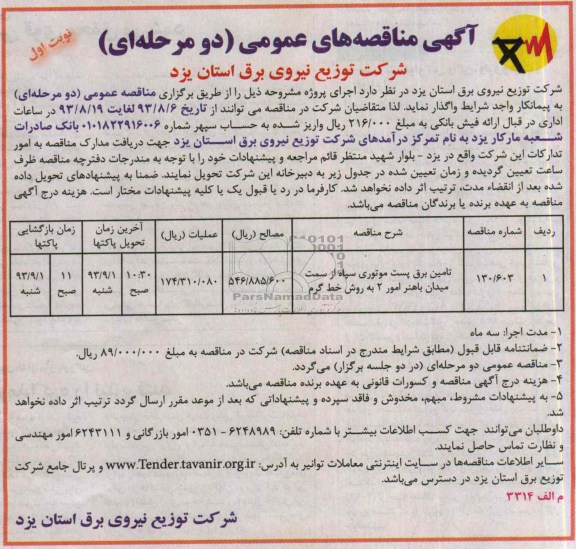 نوبت اول
آگهی مناقصه‌های عمومی (دو مرحله‌ای)
شرکت توزیع نیروی برق استان یزد
شرکت توزیع نیروی برق استان یزد در نظر دارد اجرای پروژه مشروحه ذیل را از طریق برگزاری مناقصه عمومی (دو مرحله‌ای)
به پیمانکار واجد شرایط واگذار نماید. لذا متقاضیان شرکت در مناقصه می توانند از تاریخ ۹۳/۸/۶ لغایت ۹۳/۸/۱۹ در ساعات
اداری در قبال ارائه فیش بانکی به مبلغ ۲۱۶/۰۰۰ ریال واریز شده به حساب سپهر شماره ۰۱۰۱۸۲۲۹۱۶۰۰۶ بانک صادرات
شعبه مارکار یزد به نام تمرکز درآمدهای شرکت توزیع نیروی برق استان یزد جهت دریافت مدارک مناقصه به امور
تدارکات این شرکت واقع در یزد - بلوار شهید منتظر قائم مراجعه و پیشنهادات خود را با توجه به مندرجات دفترچه مناقصه ظرف
ساعت تعیین گردیده و زمان تعیین شده در جدول زیر به دبیرخانه این شرکت تحویل نمایند. ضمنا به پیشنهادهای تحویل داده
شده بعد از انقضاء مدت، ترتیب اثر داده نخواهد شد. کارفرما در رد یا قبول یک یا کلیه پیشنهادات مختار است. هزینه درج آگهی
مناقصه به عهده برنده یا برندگان مناقصه می‌باشد.
ردیف شماره مناقصه شرح مناقصه مصالح (ریال) عملیات (ریال) آخرین زمان تحویل پاکتها زمان بازگشایی پاکتها
۱ ۱۳۰/۶۰۳ تامین برق پست موتوری سپاه از سمت میدان باهنر امور ۲ به روش خط گرم ۵۴۶/۸۸۵/۶۰۰ ۱۷۴/۳۱۰/۰۸۰ ۱۰:۳۰ صبح ۹۳/۹/۱ شنبه ۱۱ صبح ۹۳/۹/۱ شنبه
ParsNamadData
۱- مدت اجرا: سه ماه
۲- ضمانتنامه قابل قبول (مطابق شرایط مندرج در اسناد مناقصه) شرکت در مناقصه به مبلغ ۸۹/۰۰۰/۰۰۰ ریال.
۳- مناقصه عمومی دو مرحله‌ای (در دو جلسه برگزار) می‌گردد.
۴- هزینه درج آگهی مناقصه و کسورات قانونی به عهده برنده مناقصه می‌باشد.
۵- به پیشنهادات مشروط، مبهم، مخدوش و فاقد سپرده و پیشنهاداتی که بعد از موعد مقرر ارسال گردد ترتیب اثر داده نخواهد
شد.
داوطلبان می‌توانند جهت کسب اطلاعات بیشتر با شماره تلفن: ۶۲۴۸۹۸۹ - ۰۳۵۱ امور بازرگانی و ۶۲۴۳۱۱۱ امور مهندسی
و نظارت تماس حاصل نمایند.
سایر اطلاعات مناقصه‌ها در سایت اینترنتی معاملات توانیر به آدرس: www.Tender.tavanir.org.ir و پرتال جامع شرکت
توزیع برق استان یزد در دسترس می‌باشد.
م الف ۳۳۱۴
شرکت توزیع نیروی برق استان یزد